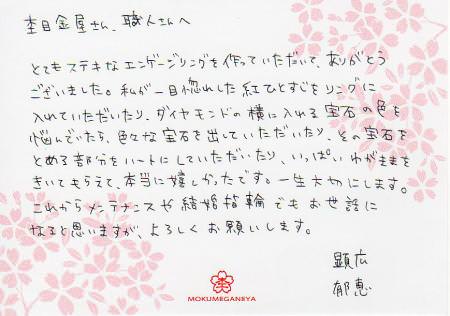 杢目金屋さん、職人さんへ
とてもステキなエンゲージリングを作っていただいて、ありがとう
ございました。私が一目惚れした紅ひとすじをリングに
入れていただいたり、ダイヤモンドの横に入れる宝石の色を
悩んでいたら、色々な宝石を出していただいたり、その宝石を
とめる部分をハートにしていただいたり、いっぱいわがままを
きいてもらえて、本当に嬉しかったです。一生大切にします。
これからメンテナンスや結婚指輪でもお世話に
なると思いますが、よろしくお願いします。
顕広
郁恵
MOKUMEGANEYA